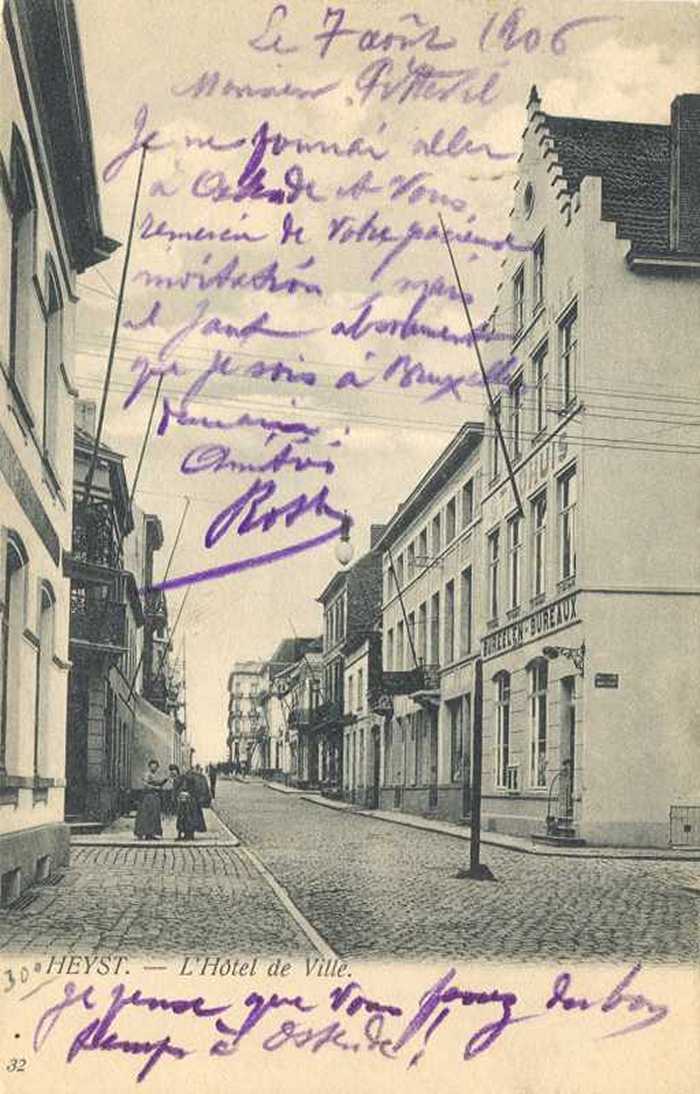 Le 7 août 1906
Monsieur
Je ne pourrai aller
à Ostende et Vous
remercie de Votre gracieuse
invitation mais
il faut absolument
que je sois à Bruxelles
demain.
Amitiés
HUIS
BUREELEN-BUREAUX
30
HEYST. — L'Hôtel de Ville.
Je pense que Vous passez du bon
temps à Ostende!
32